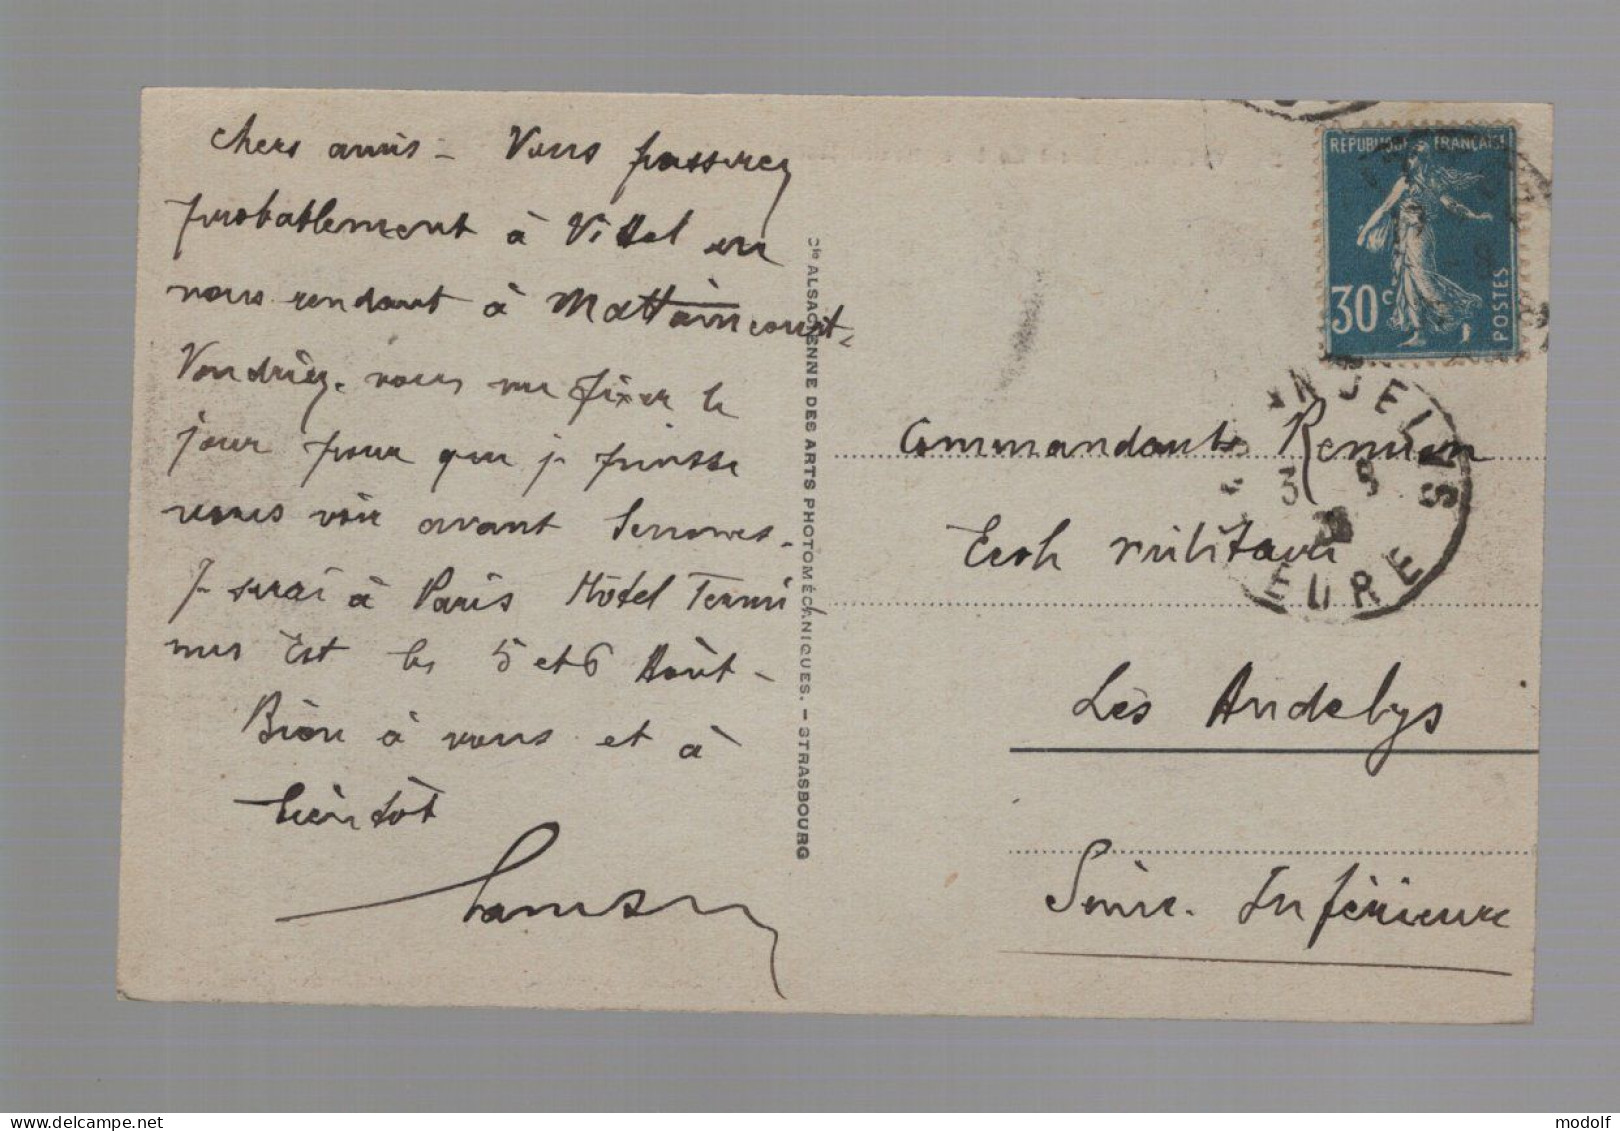 Chers amis – Vous passerez
probablement à Vittel en
vous rendant à Mattaincourt.
Voudriez-vous me fixer le
jour pour que je puisse
vous voir avant
Je serai à Paris Hôtel Termi
nus Est les 5 et 6 Août –
Bien à vous et à
bientôt
Cie ALSACIENNE DES ARTS PHOTOMÉCANIQUES. – STRASBOURG
RÉPUBLIQUE FRANÇAISE
30c
POSTES
Commandant
Ecole militaire
Les Andelys
Seine. Inférieure
EURE
modolf
delcampe.net